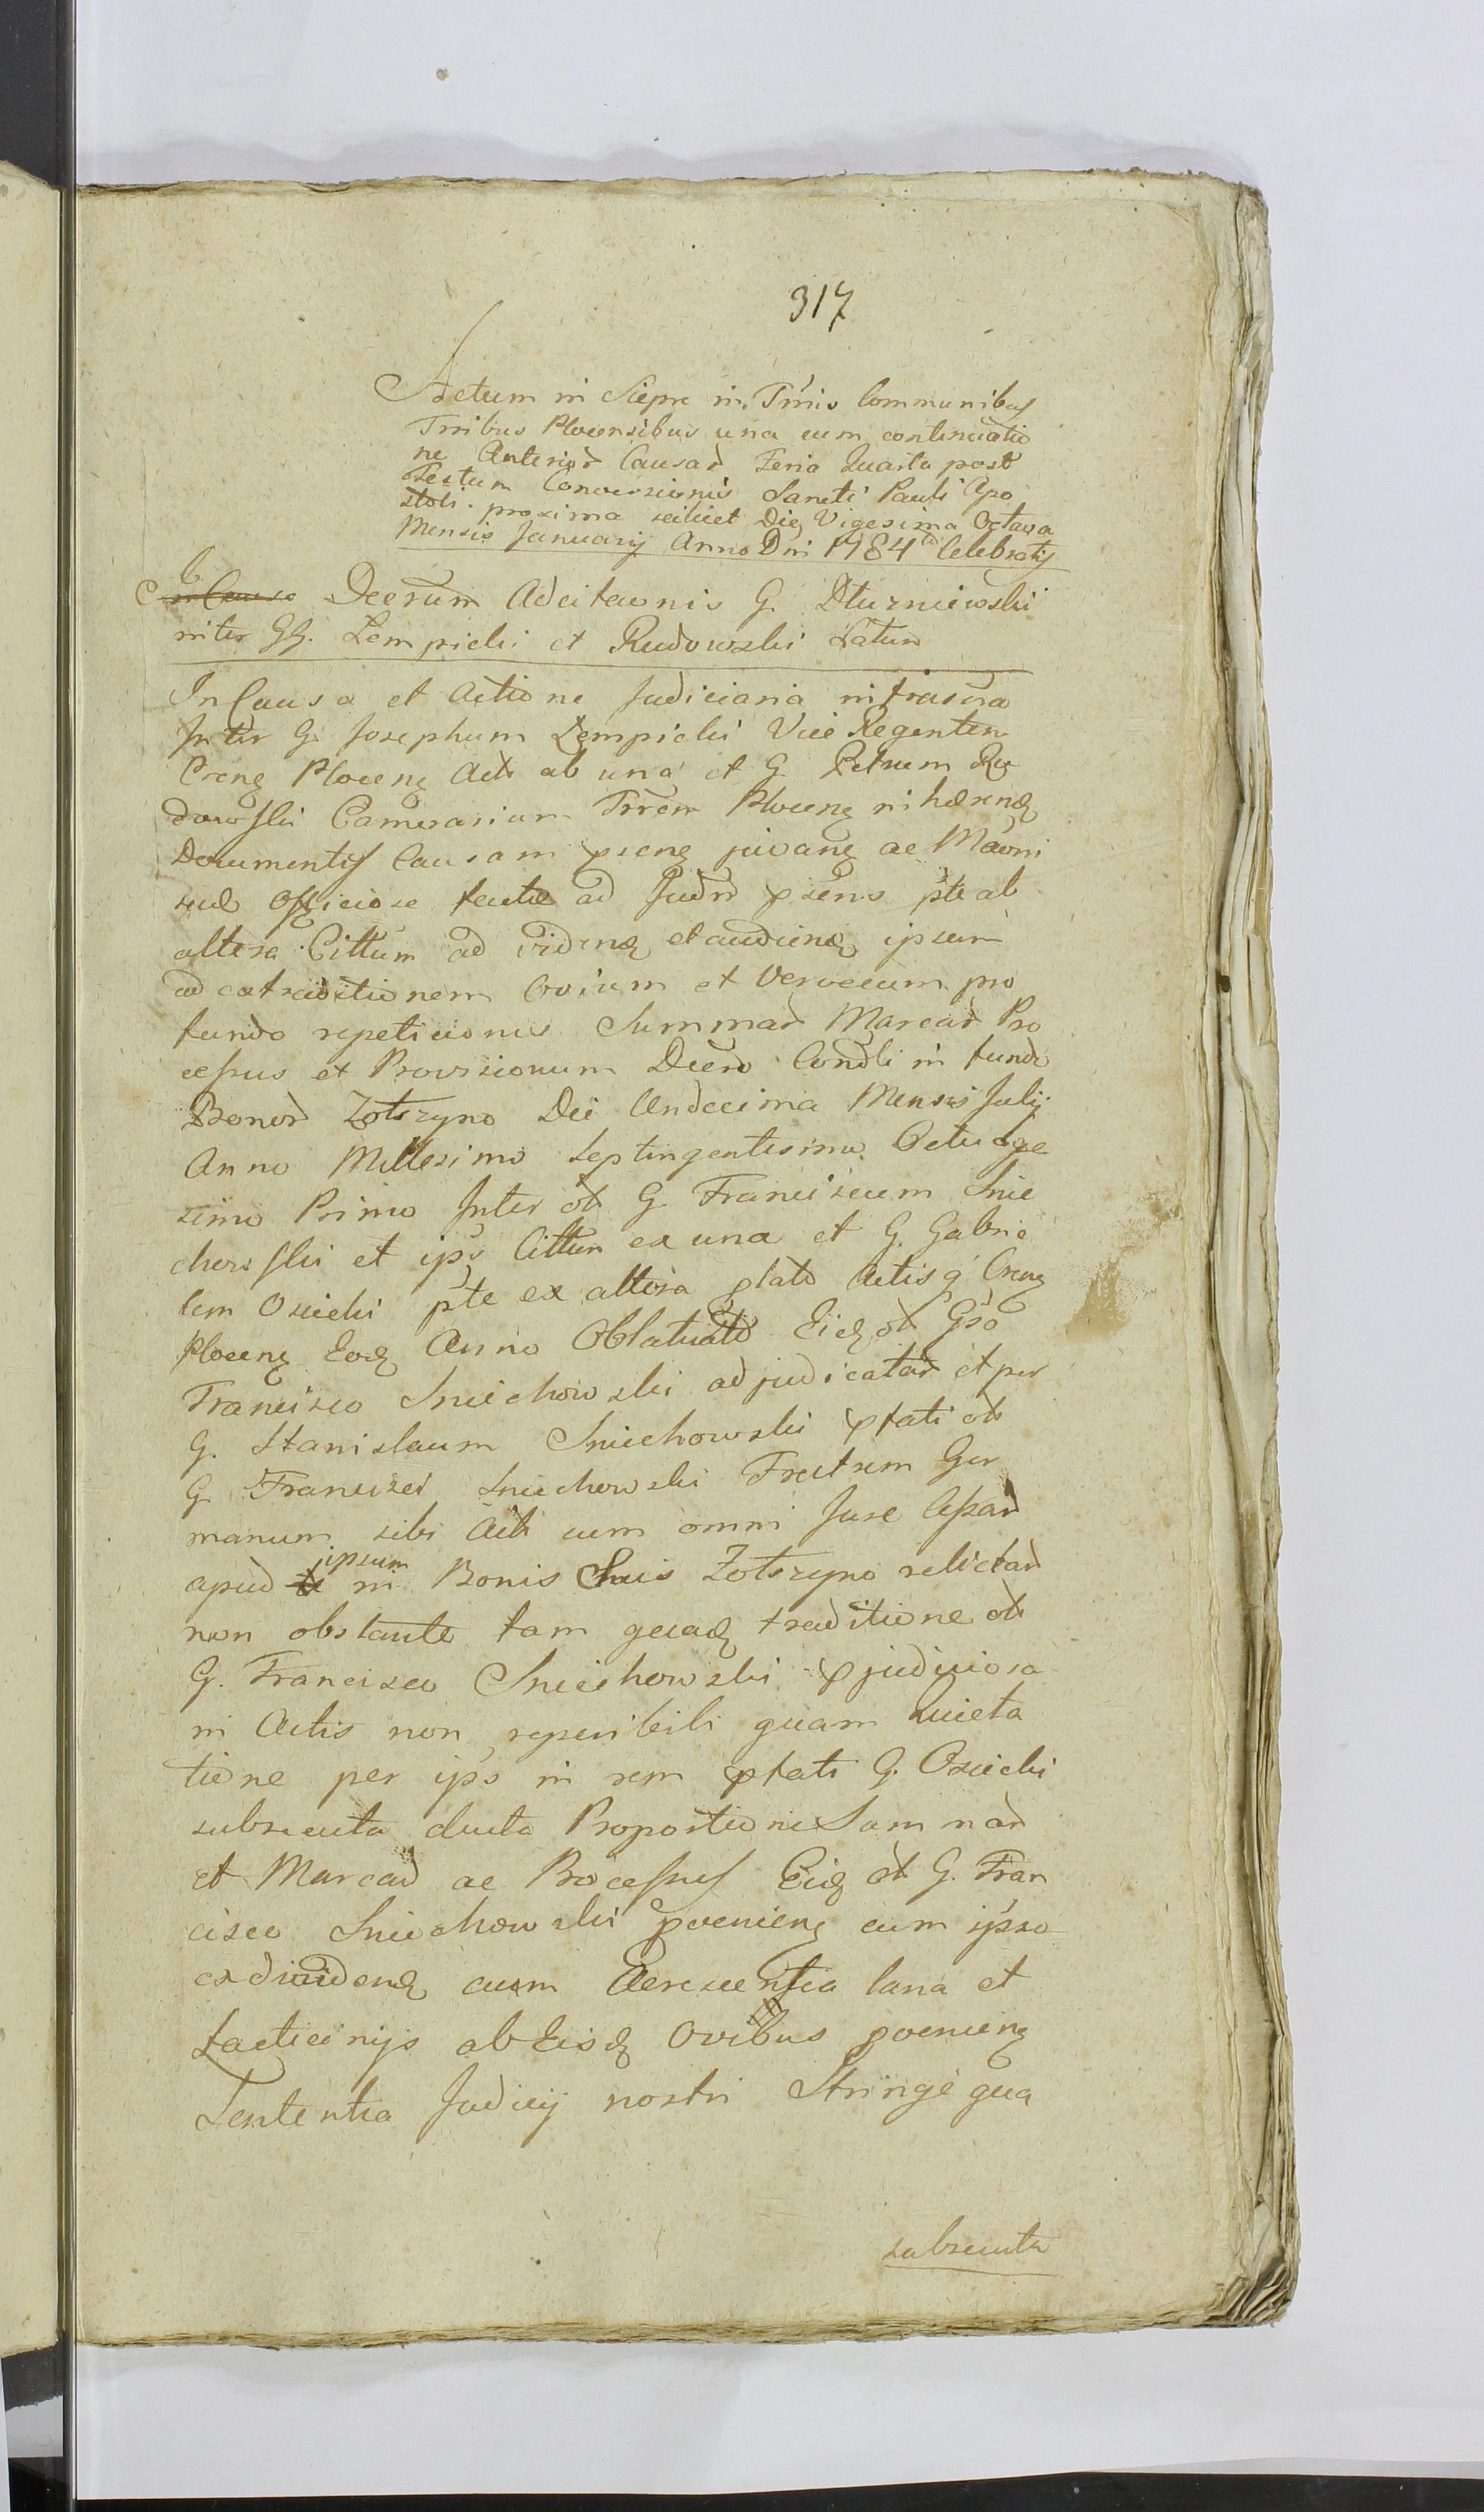 317
Actum in Siepre in Trnis Communibus
Trribus Plocensibus una cum continuatio
ne Anterior Causar Feria Quarta post
Festum Conversionis Sancti Pauli Apo
stoli proxima scilicet Die Vigesima Octava
Mensis Januarij Anno Dni 1784to Celebratis
Decrum Adcitaonis G. Dłuzniewski
inter GG. Zempicki et Rudowski Latum
In Causa et Actione Judiciaria infrascra
Inter G. Josephum Zempicki Vice Regentem
Crens Plocens Act ab una et G. Petrum Ru
dowski Camerarium Trrem Plocens inhærend
Documentis Causam psens juvans ac Maoni
suæ officiose factæ ad Judm psens pte ab
altera Cittum ad vidend et audiend ipsum
ad extraditionem Ovium et Vervecum pro
fundo repeticionis Summar Marcar Pro
cessus et Provisionum Decro Condli in fundo
Bonor Zotszyno Die Undecima Mensis Julij
Anno Millesimo Septingentesimo Octuage
simo Primo Inter ol G Franciscum Snie
chowski et ips Cittum ex una et G. Gabrie
lem Osiecki pte ex altera plato Actisq Crens
Plocens Eod Anno Oblatuato Eid ol Gso
Francisco Sniechowski adjudicatar et per
G. Stanislaum Sniechowski pfati ol
G Francisci Sniechowski Fratrem Ger
manum sibi Acti cum omni Jure Cessar
apud ipsum in Bonis Suis Zotszyno relictar
non obstante tam quad traditione ol
G. Francisco Sniechowski pjudiciosa
in Actis non reperibili quam Quieta
tione per ips in rem pfati G. Osiecki
subsecuta ducta Proportione Summar
et Marcar ac Processus Eid ol G. Fran
cisco Sniechowski pveniens cum ipso
exdividend cum Accrescentia lana et
Lacticinijs ab Eisd Ovibus pveniens
Sententia Judicij nostri Stringe qua
subsecuta